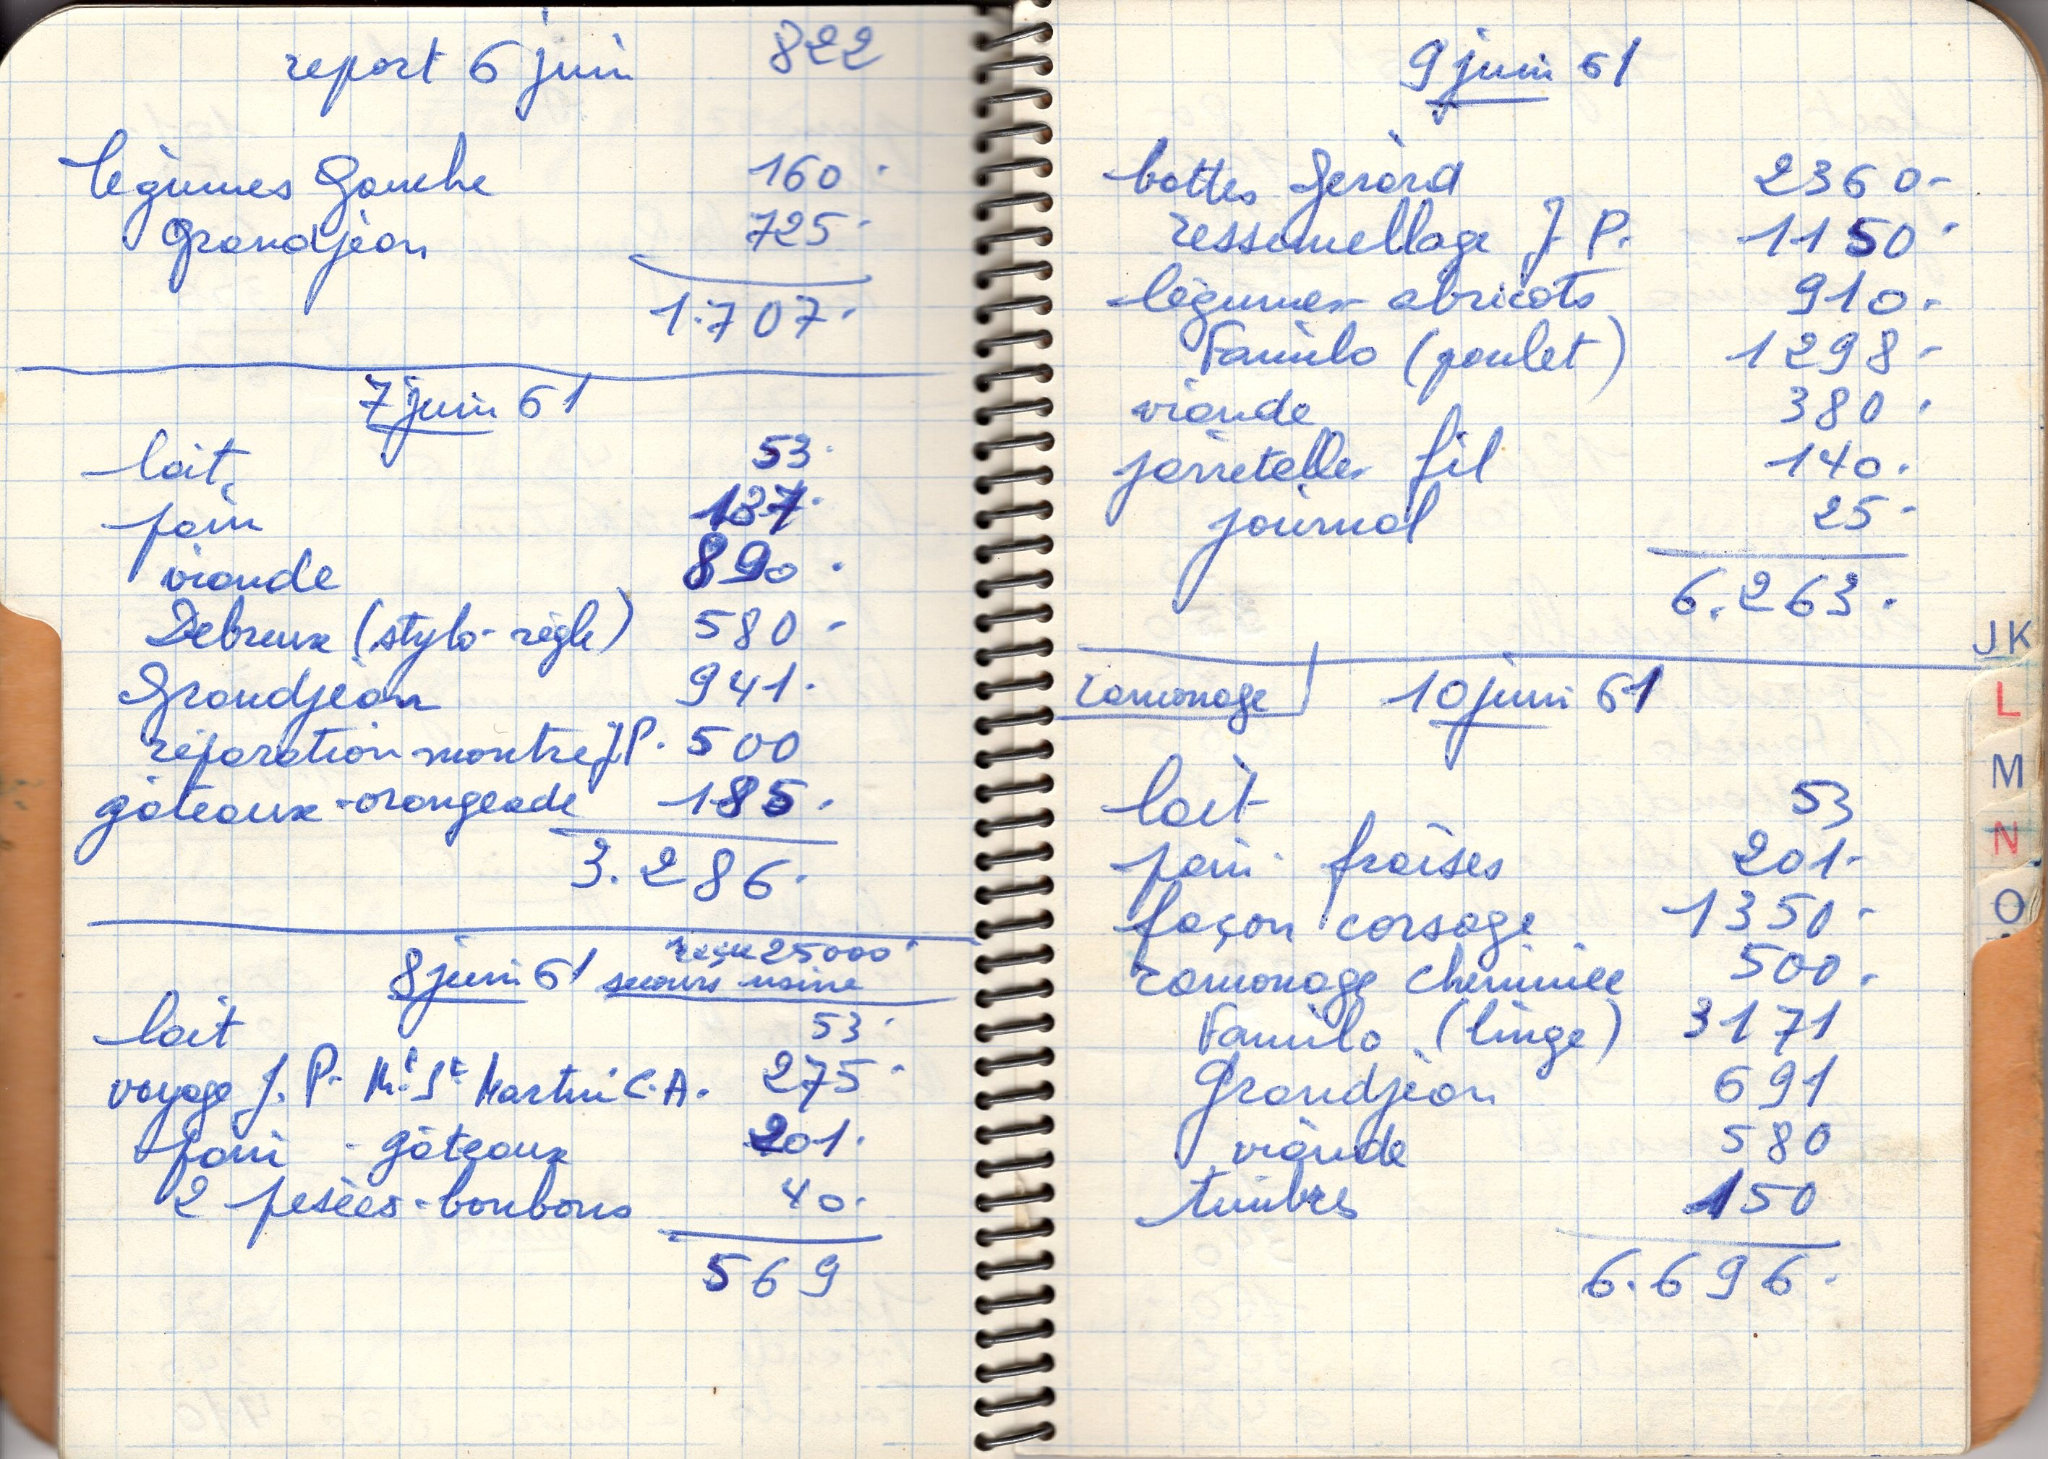 report 6 juin 822
légumes Gauche 160.
Grandjean 725.
1.707.
7 juin 61
lait 53.
pain 137.
viande 890.
Debreux (stylo-règle) 580-
Grandjean 941.
réparation montre J P. 500
gâteaux-orangeade 185.
3.286.
8 juin 61 reçu 25000
secours usine
lait 53.
voyage J. P. St Martin C. A. 275.
pain - gâteaux 201.
2 pesées-bonbons 40.
569
9 juin 61
bottes Gérard 2360-
ressemellage J. P. 1150.
légumes abricots 910.
Familo (poulet) 1298-
viande 380.
jarretelles fil 140.
journal 25-
6.263.
JK
ramonage 10 juin 61
L
M
lait 53
N
pain fraises 201-
O
façon corsage 1350-
ramonage cheminée 500.
Familo (linge) 3171
Grandjean 691
viande 580
timbres 150
6.696.